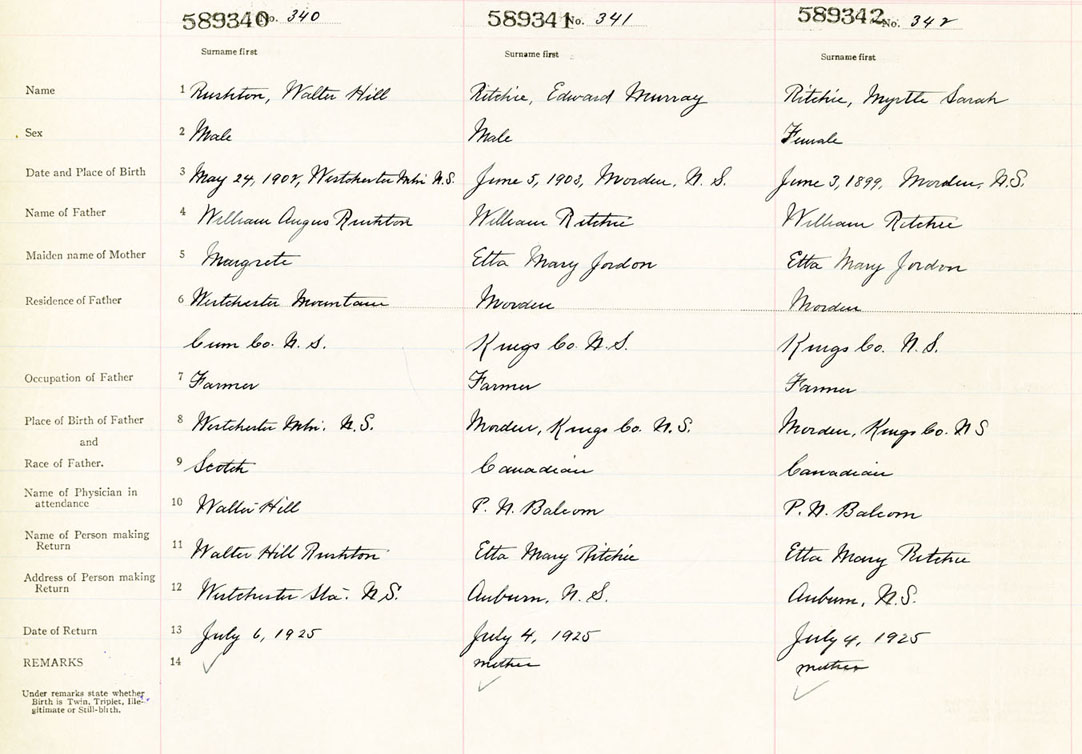 589340 No. 340 589341 No. 341 589342 No. 342
Surname first Surname first Surname first
Name 1 Rushton, Walter Hill Ritchie, Edward Murray Ritchie, Myrtle Sarah
Sex 2 Male Male Female
Date and Place of Birth 3 May 24, Westchester Mtn. N.S. June 5, 1903, Morden, N.S. June 3, 1899, Morden, N.S.
Name of Father 4 William Angus Rushton William Ritchie William Ritchie
Maiden name of Mother 5 Margrete Etta Mary Jordon Etta Mary Jordon
Residence of Father 6 Westchester Mountain Morden Morden
Cum Co. N.S. Kings Co. N.S. Kings Co. N.S.
Occupation of Father 7 Farmer Farmer Farmer
Place of Birth of Father 8 Westchester Mtn. N.S. Morden, Kings Co. N.S. Morden, Kings Co. N S
and
Race of Father. 9 Scotch Canadian Canadian
Name of Physician in
attendance 10 Walter Hill P. N. Balcom P. N. Balcom
Name of Person making
Return 11 Walter Hill Rushton Etta Mary Ritchie Etta Mary Ritchie
Address of Person making
Return 12 Westchester Sta. N.S. Auburn, N.S. Auburn, N.S.
Date of Return 13 July 6, 1925 July 4, 1925 July 4, 1925
REMARKS 14 ✓ mother mother
✓ ✓
Under remarks state whether
Birth is Twin, Triplet, Ille-
gitimate or Still-birth.